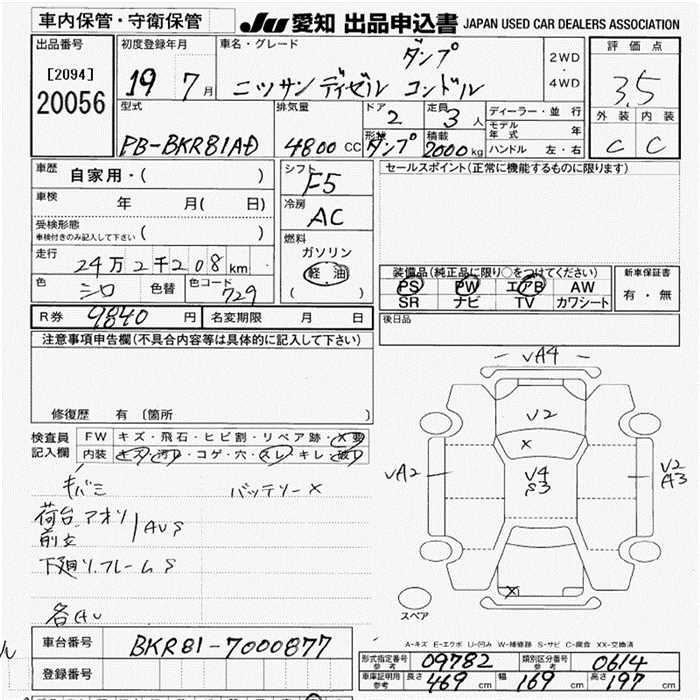 車内保管・守衛保管
JU 愛知 出品申込書 JAPAN USED CAR DEALERS ASSOCIATION
出品番号
[2094]
20056
初度登録年月
19 7月
車名・グレード
ダンプ
ニッサンディゼル コンドル
2WD
・
4WD
評価点
3.5
外装 内装
C C
型式
PB-BKR81AD
排気量
4800 CC
ドア
2
定員
3人
形状
ダンプ
積載
2000kg
ディーラー・並行
モデル年式 年
ハンドル 左・右
車歴
自家用・( )
車検
年 月( 日)
受検形態
車検付きのみ記入して下さい ( )
走行
24万2千208km
色
シロ
色替
色コード
729
シフト
F5
冷房
AC
燃料
ガソリン
軽油
( )
セールスポイント(正常に機能するものに限ります)
装備品(純正品に限り○をつけてください)
PS PW エアB AW
SR ナビ TV カワシート
新車保証書
有・無
R券 9840円
名変期限 月 日
後日品
注意事項申告欄(不具合内容等は具体的に記入して下さい)
修復歴 有〔箇所 〕
検査員記入欄
FW キズ・飛石・ヒビ割・リペア跡・X要
内装 キズ・汚レ・コゲ・穴・スレ・キレ・破レ
キバミ バッテリーX
荷台.アオリ
前立
AUS
下廻り.フレームS
各AU
VA4
V2
X
VA2
V4
S3
V2
A3
X
スペア
A-キズ E-エクボ U-凹み W-補修跡 S-サビ C-腐食 XX-交換済
車台番号 BKR81-7000877
登録番号
型式指定番号 参考 09782
類別区分番号 参考 0614
車庫証明用 参考 長さ 469cm 幅 169cm 高さ 197cm